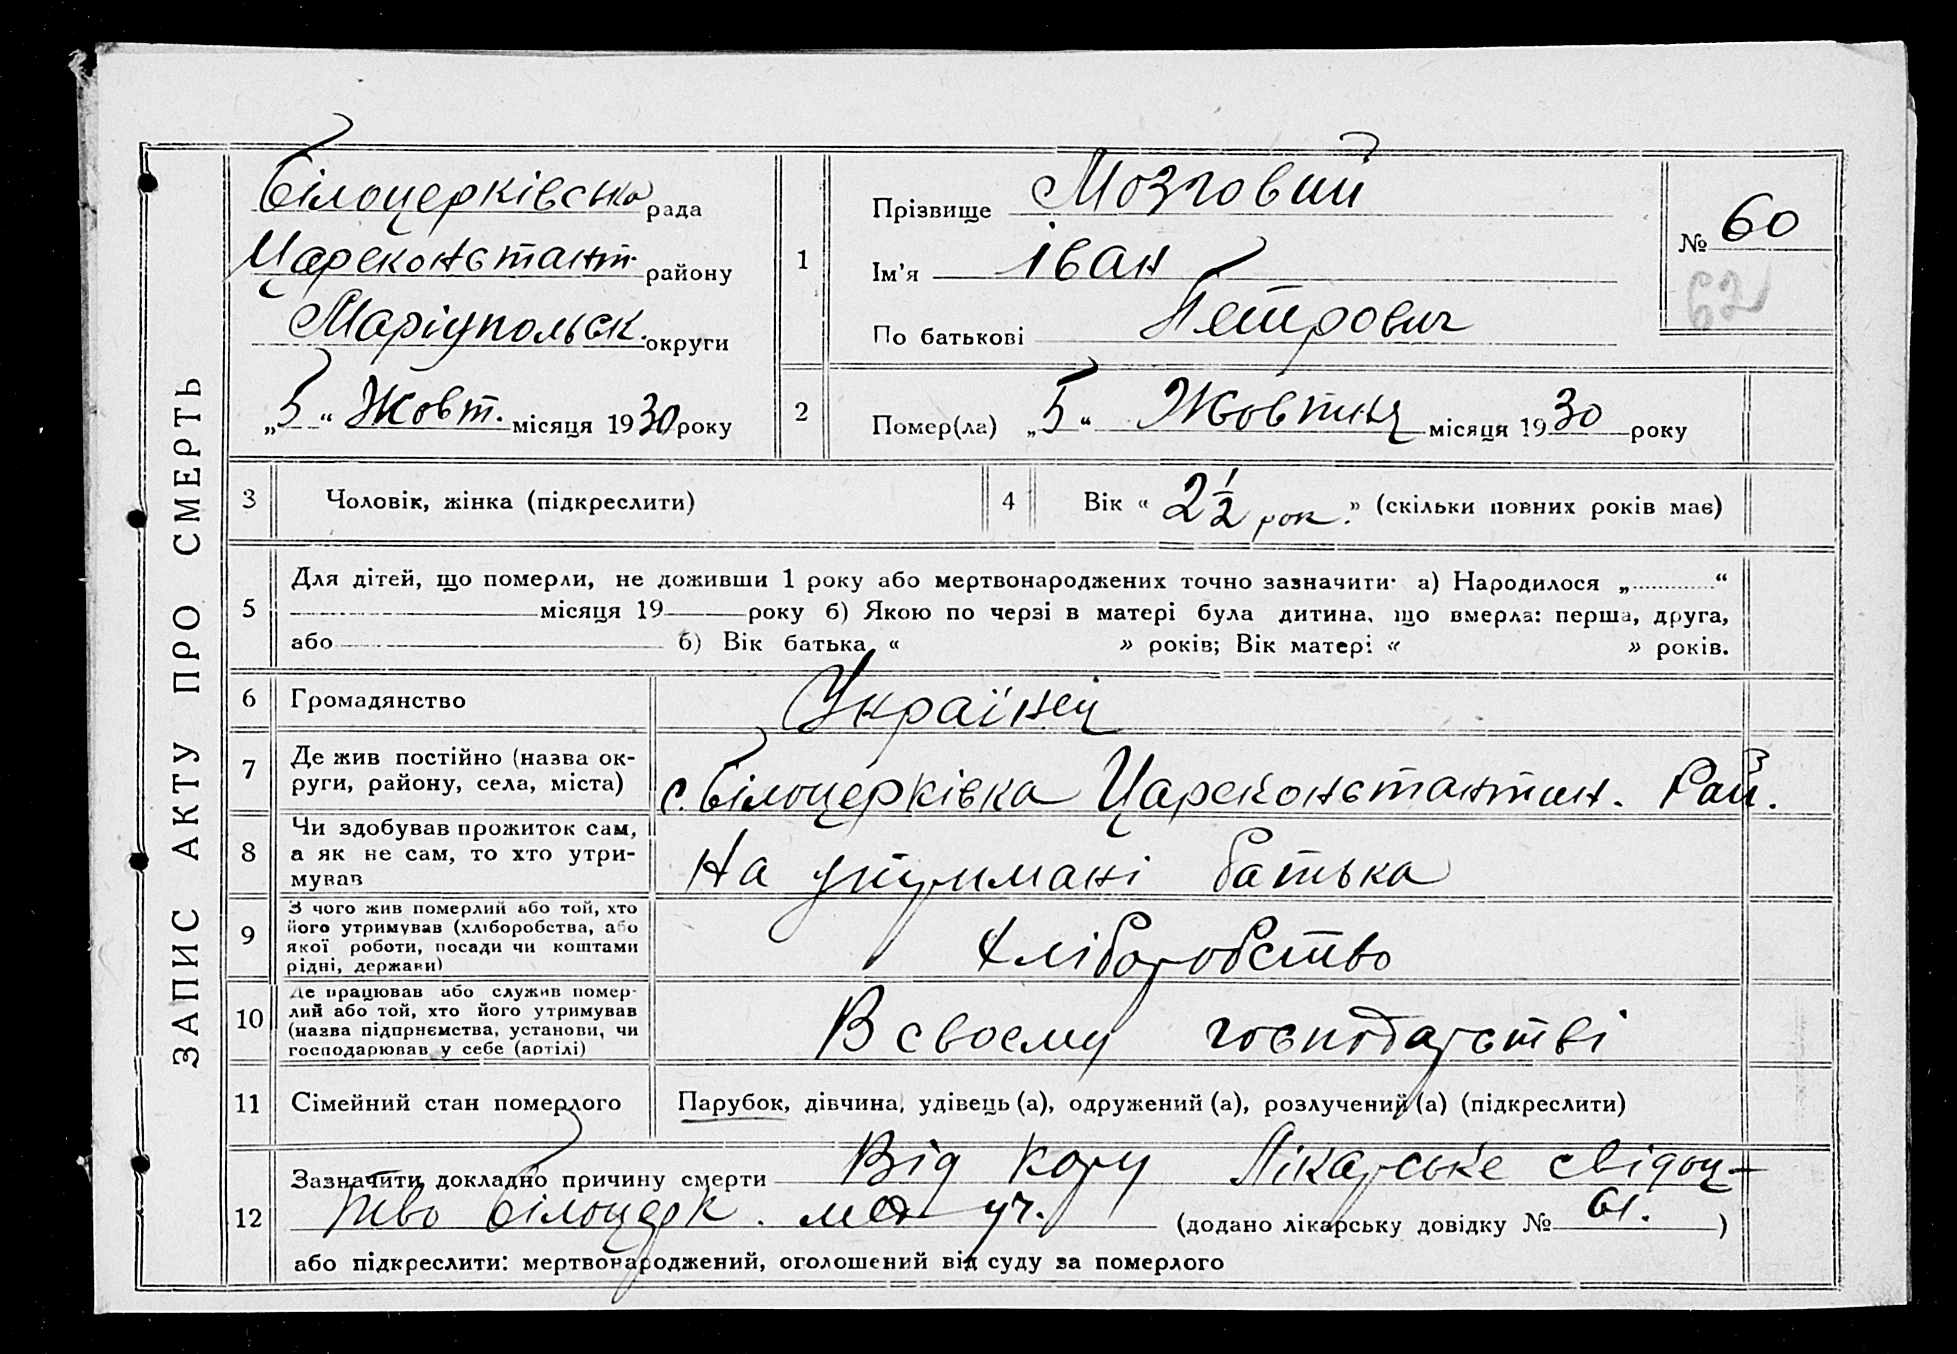 ЗАПИС АКТУ ПРО СМЕРТЬ
Білоцерківська рада
Цареконстант. району
Маріупольск. округи
„5“ Жовт. місяця 1930 року
1
Прізвище Мозговий
Ім’я Іван
По батькові Петрович
№ 60
62
2
Помер(ла) „5“ Жовтня місяця 1930 року
3
Чоловік, жінка (підкреслити)
4
Вік « 2 1/2 рок. » (скільки повних років має)
5
Для дітей, що померли, не доживши 1 року або мертвонароджених точно зазначити: а) Народилося „ “
місяця 19 року б) Якою по черзі в матері була дитина, що вмерла: перша, друга,
або б) Вік батька « » років; Вік матері « » років.
6
Громадянство
Українец
7
Де жив постійно (назва ок-
руги, району, села, міста)
с. Білоцерківка Цареконстантин. Рай.
3
8
Чи здобував прожиток сам,
а як не сам, то хто утри-
мував
На утримані батька
9
З чого жив померлий або той, хто
його утримував (хліборобства, або
якої роботи, посади чи коштами
рідні, держави)
Хліборобство
10
Де працював або служив помер-
лий або той, хто його утримував
(назва підприємства, установи, чи
господарював у себе (артілі)
В своєму господарстві
11
Сімейний стан померлого
Парубок, дівчина, удівець (а), одружений (а), розлучений (а) (підкреслити)
12
Зазначити докладно причину смерти Від кору Лікарське свідоц-
тво Білоцерк. мед уч. (додано лікарську довідку № 61. )
або підкреслити: мертвонароджений, оголошений від суду за померлого